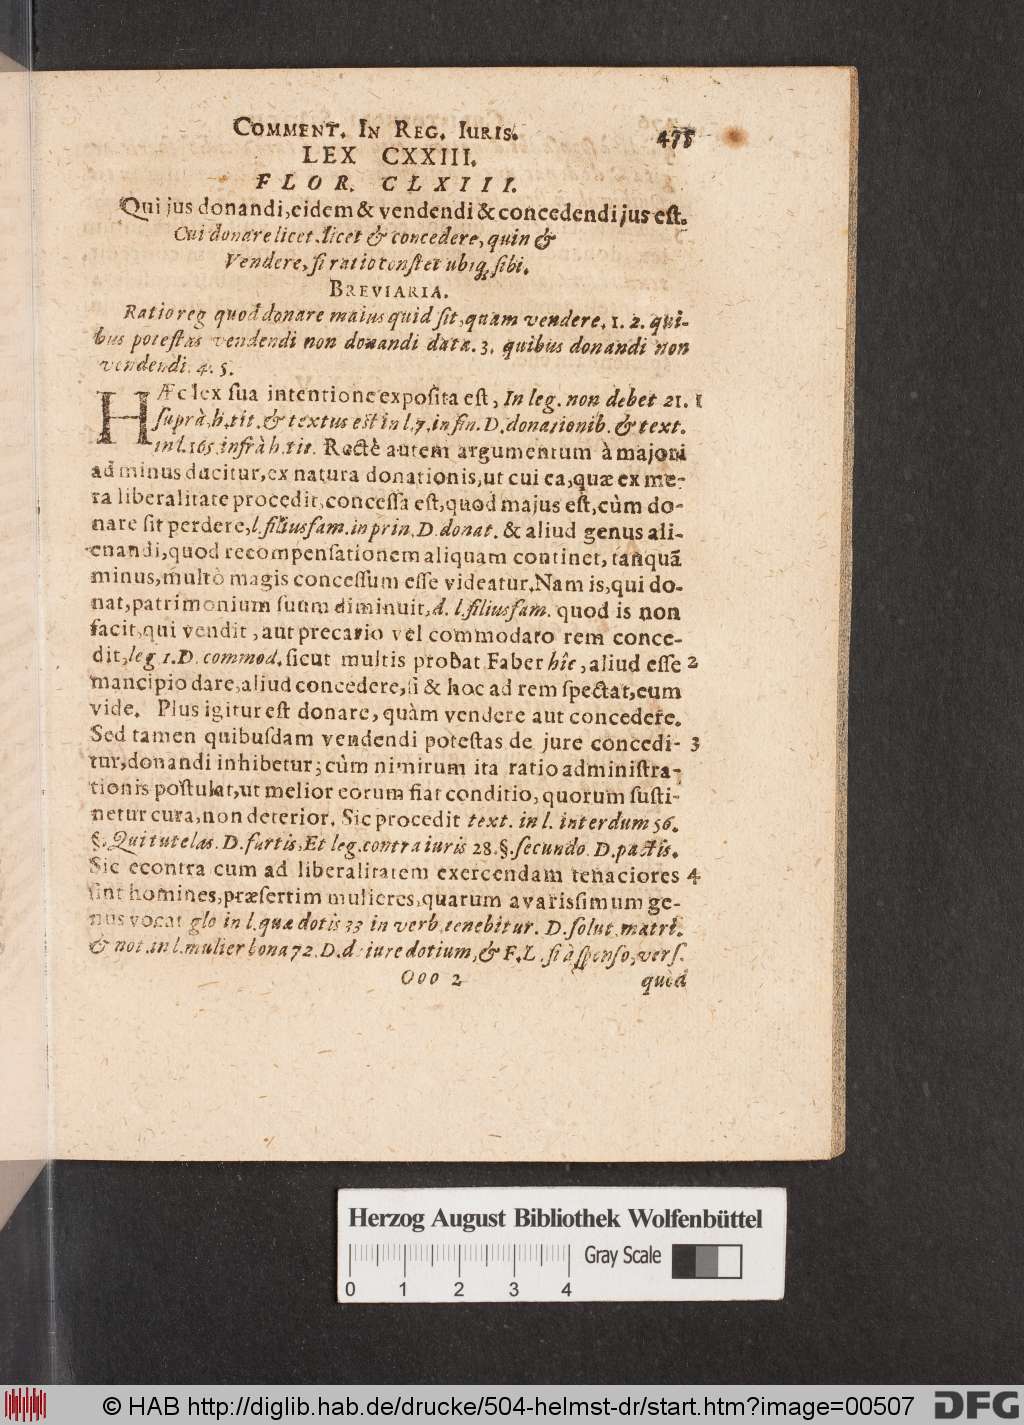 COMMENT. IN REG. IURIS. 475
LEX CXXIII.
FLOR. CLXIII.
Qui jus donandi, eidem & vendendi & concedendi jus est.
Cui donare licet, licet & concedere, quin &
Vendere, si ratio constet ubiq; sibi.
BREVIARIA.
Ratio reg quod donare maius quid sit, quam vendere. 1. 2. qui-
bus potestas vendendi non donandi data. 3. quibus donandi non
vendendi. 4. 5.
HÆc lex sua intentione exposita est, In leg. non debet 21. 1
suprà, h. tit. & textus est in l. 7. in fin. D. donationib. & text.
in l. 165. infrà h. tit. Rectè autem argumentum à majori
ad minus ducitur, ex natura donationis, ut cui ea, quæ ex me-
ra liberalitate procedit, concessa est, quod majus est, cùm do-
nare sit perdere, l. filiusfam. in prin. D. donat. & aliud genus ali-
enandi, quod recompensationem aliquam continet, tanquã
minus, multò magis concessum esse videatur. Nam is, qui do-
nat, patrimonium suum diminuit, d. l. filiusfam. quod is non
facit, qui vendit, aut precario vel commodato rem conce-
dit, leg 1. D. commod. sicut multis probat Faber hîc, aliud esse 2
mancipio dare, aliud concedere, si & hoc ad rem spectat, eum
vide. Plus igitur est donare, quàm vendere aut concedere.
Sed tamen quibusdam vendendi potestas de jure concedi- 3
tur, donandi inhibetur; cùm nimirum ita ratio administra-
tionis postulat, ut melior eorum fiat conditio, quorum susti-
netur cura, non deterior. Sic procedit text. in l. interdum 56.
§. Qui tutelas. D. furtis, Et leg. contra iuris 28. §. secundo. D. pactis.
Sic econtra cum ad liberalitatem exercendam tenaciores 4
sint homines, præsertim mulieres, quarum avarissimum ge-
nus vocat glo in l. quæ dotis 33 in verb. tenebitur. D. solut. matri.
& not. in l. mulier bona 72. D. d. iure dotium, & F. L. si à sponso, vers.
Ooo 2 quòd
Herzog August Bibliothek Wolfenbüttel
Gray Scale
0 1 2 3 4
© HAB http://diglib.hab.de/drucke/504-helmst-dr/start.htm?image=00507 DFG